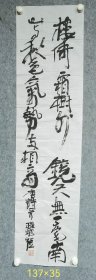 楼倚霜樹外鏡天無一毫南
山与秋色氣勢两相高
137×35